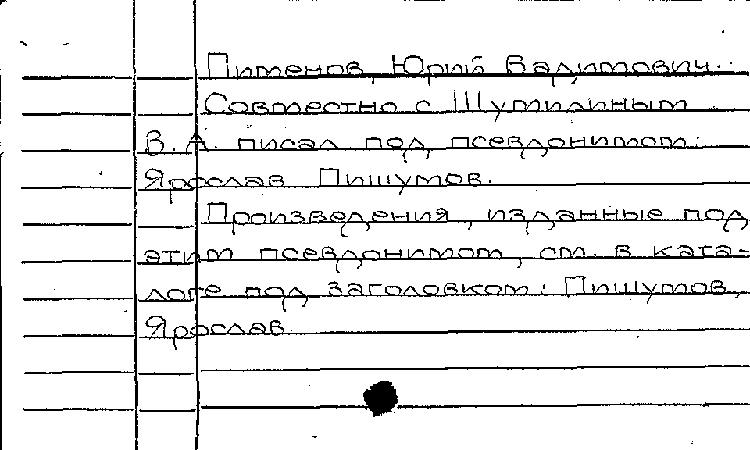 Пименов, Юрий Вадимович.
Совместно с Шутилиным
В. А. писал под псевдонимом:
Ярослав Пишумов.
Произведения, изданные под
этим псевдонимом, см. в ката-
логе под заголовком: Пишумов,
Ярослав